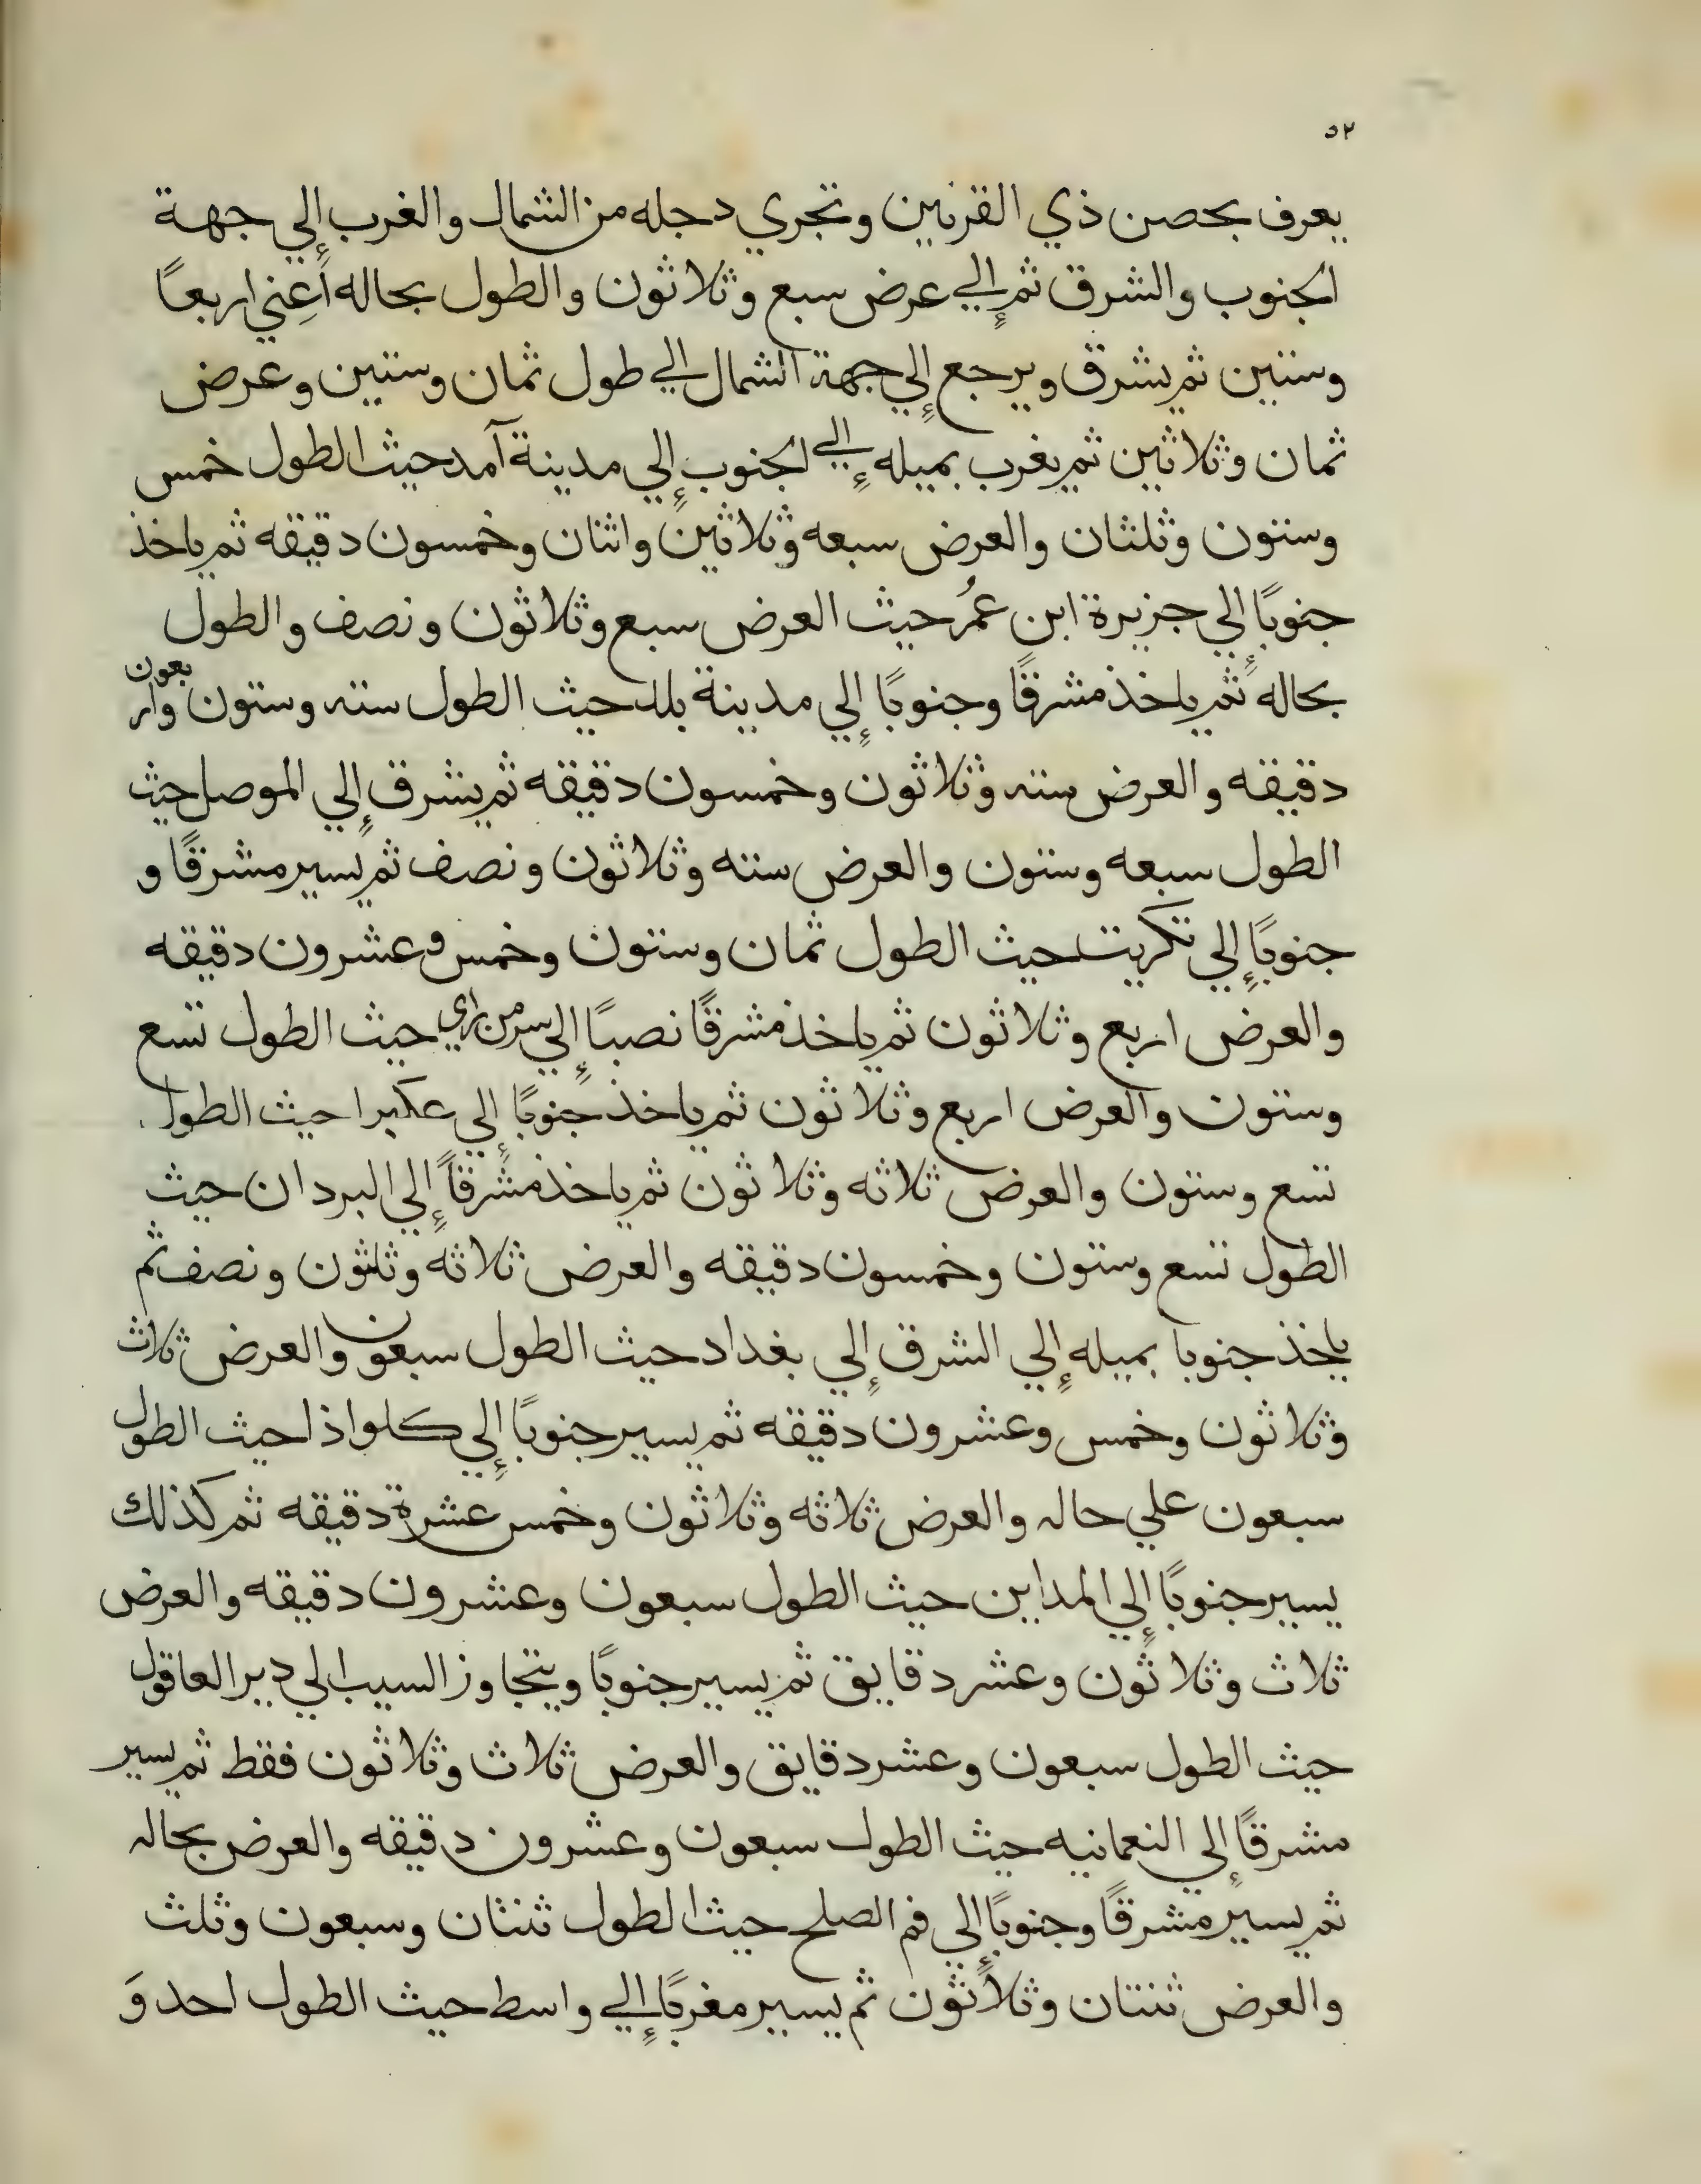 ٥٢
يعرف بحصن ذي القرنين وتجري دجله من الشمال والغرب إلي جهة
الجنوب والشرق ثم إلي عرض سبع وثلاثون والطول بحاله أعني اربعًا
وستين ثم يشرق ويرجع إلي جهة الشمال الي طول ثمان وستين وعرض
ثمان وثلاثين ثم يغرب بميله إلي الجنوب إلي مدينة آمد حيث الطول خمس
وستون وثلثان والعرض سبعه وثلاثين واثنان وخمسون دقيقه ثم ياخذ
جنوبًا إلي جزيرة ابن عمُر حيث العرض سبع وثلاثون ونصف والطول
بحاله ثم ياخذ مشرقًا وجنوبًا إلي مدينة بلد حيث الطول سته وستون واربعون
دقيقه والعرض سته وثلاثون وخمسون دقيقه ثم يشرق إلي الموصل حيث
الطول سبعه وستون والعرض سته وثلاثون ونصف ثم يسير مشرقًا و
جنوبًا إلي تكريت حيث الطول ثمان وستون وخمس وعشرون دقيقه
والعرض اربع وثلاثون ثم ياخذ مشرقًا نصبًا إلي سر من راي حيث الطول تسع
وستون والعرض اربع وثلاثون ثم ياخذ جنوبًا إلي عكبرا حيث الطول
تسع وستون والعرض ثلاثه وثلاثون ثم ياخذ مشرقاً إلي البردان حيث
الطول تسع وستون وخمسون دقيقه والعرض ثلاثه وثلثون ونصف ثم
ياخذ جنوبا بميله إلي الشرق إلي بغداد حيث الطول سبعون والعرض ثلاث
وثلاثون وخمس وعشرون دقيقه ثم يسير جنوبًا إلي كلواذا حيث الطول
سبعون علي حاله والعرض ثلاثه وثلاثون وخمس عشرة دقيقه ثم كذلك
يسير جنوبًا إلي المداين حيث الطول سبعون وعشرون دقيقه والعرض
ثلاث وثلاثون وعشر دقايق ثم يسير جنوبًا ويتجاوز السيب الي دير العاقول
حيث الطول سبعون وعشر دقايق والعرض ثلاث وثلاثون فقط ثم يسير
مشرقًا إلي النعمانيه حيث الطول سبعون وعشرون دقيقه والعرض بحاله
ثم يسير مشرقًا وجنوبًا إلي فم الصلح حيث الطول ثنتان وسبعون وثلث
والعرض ثنتان وثلاثون ثم يسير مغربًا إلي واسط حيث الطول احد وَ